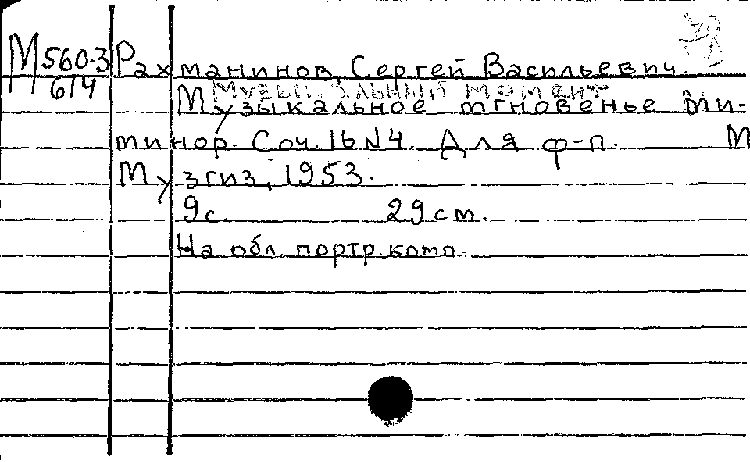 М 560-3
614
Рахманинов, Сергей Васильевич.
Музыкальный момент
Музыкальное мгновенье ми-
минор. Соч. 16 №4. Для ф-п. М
Музгиз, 1953.
9 с. 29 см.
На обл. портр. комп.